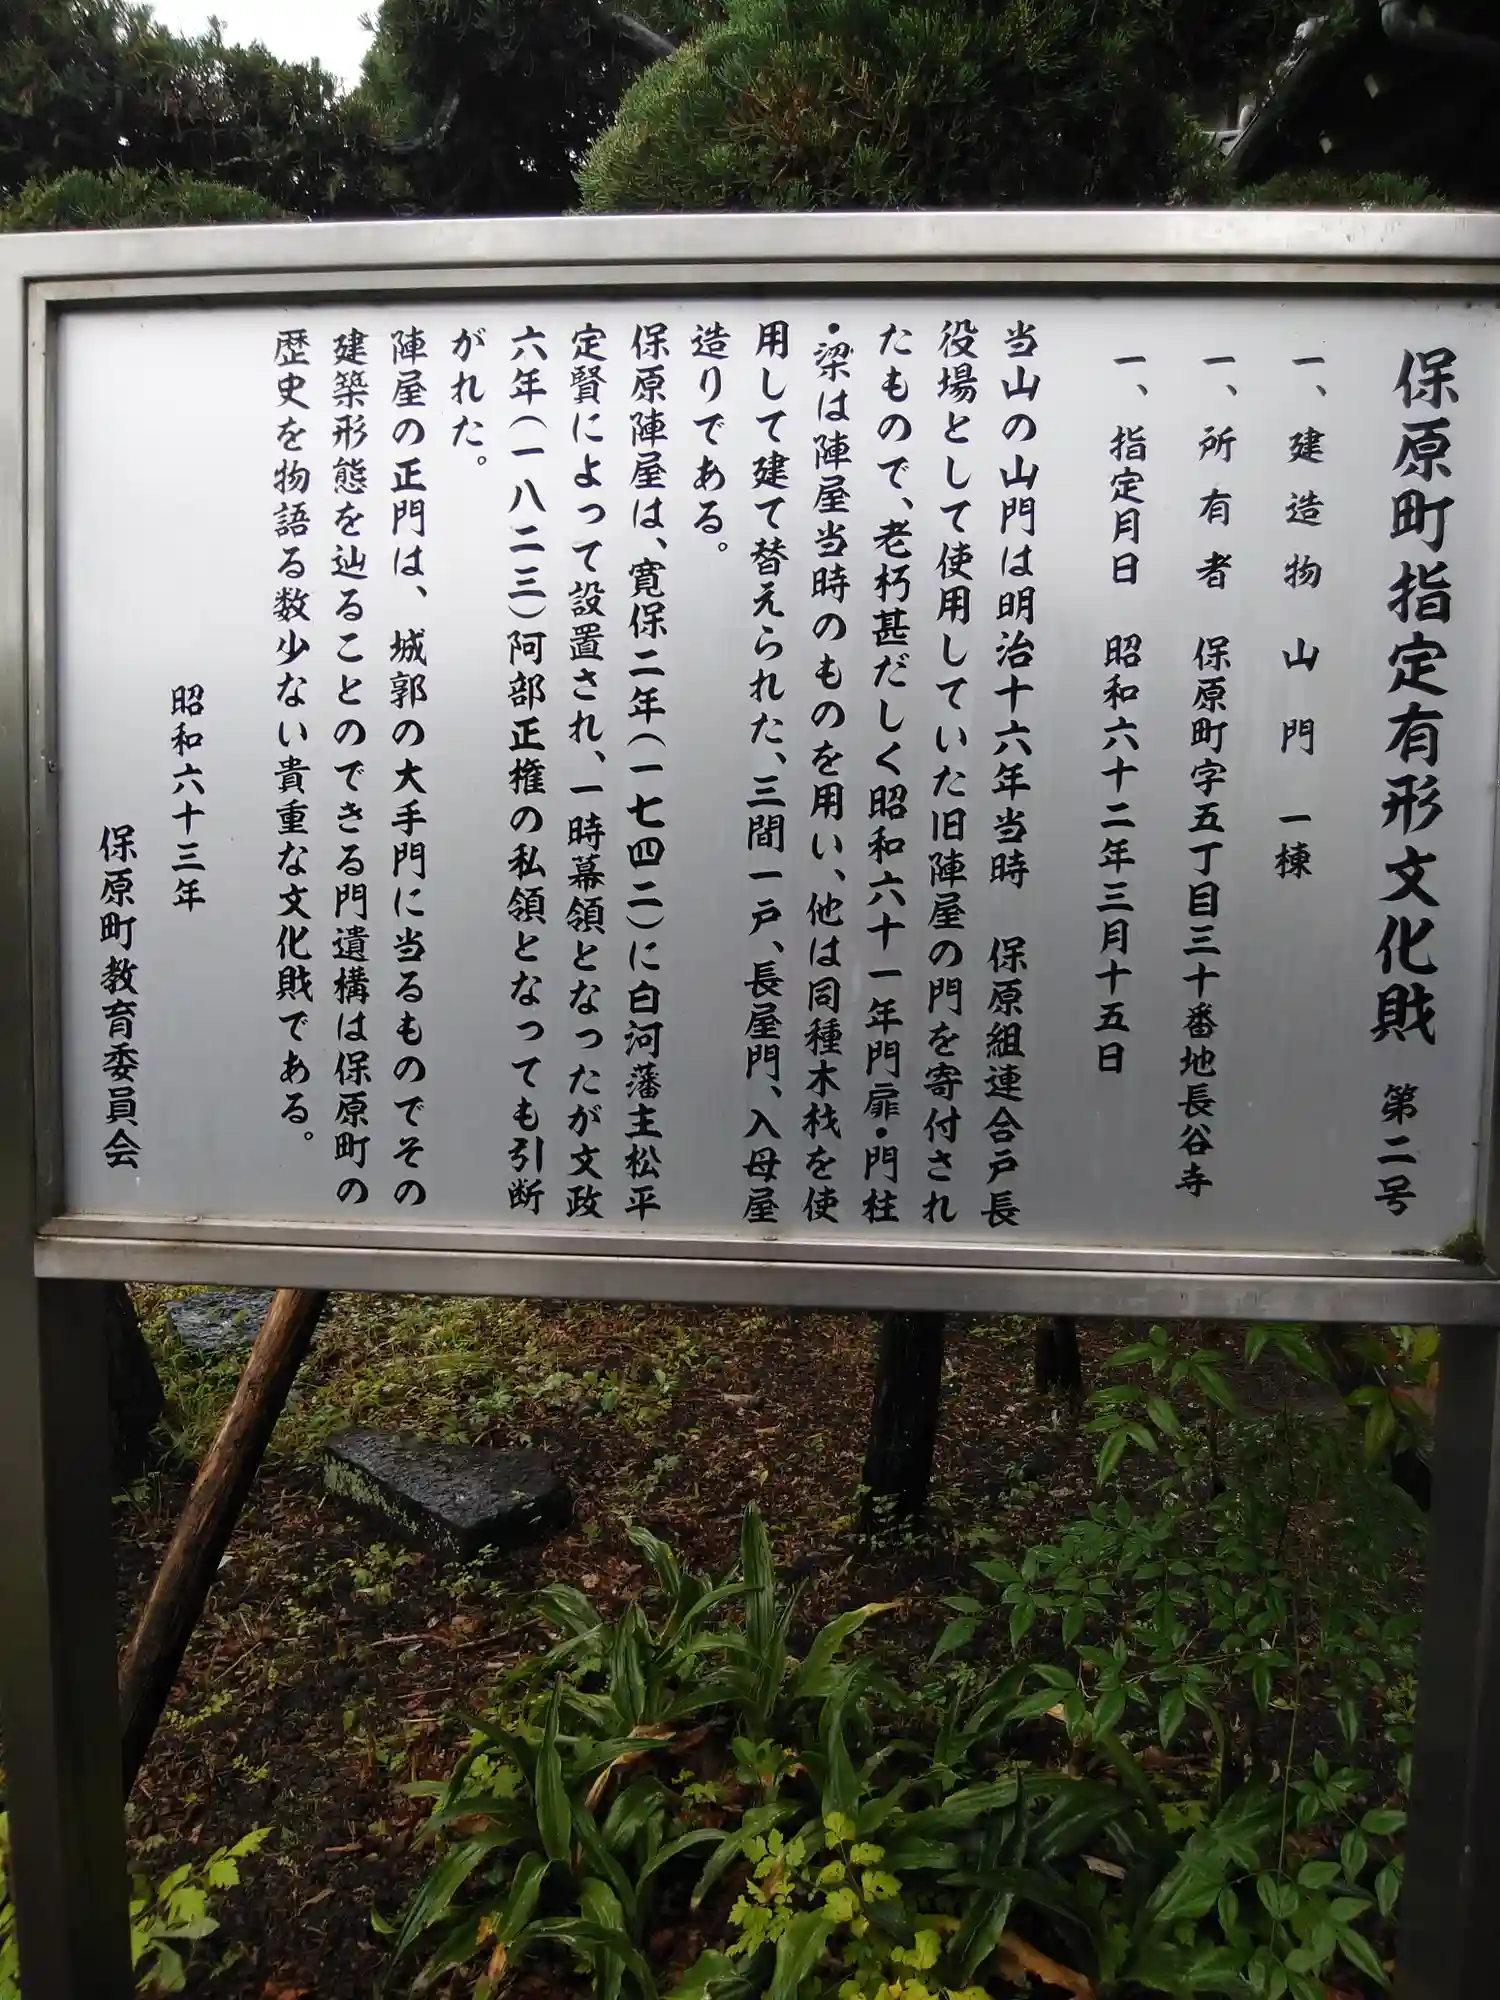 保原町指定有形文化財　第二号
一、建造物　山門　一棟
一、所有者　保原町字五丁目三十番地長谷寺
一、指定月日　昭和六十二年三月十五日
当山の山門は明治十六年当時　保原組連合戸長
役場として使用していた旧陣屋の門を寄付され
たもので、老朽甚だしく昭和六十一年門扉・門柱
・梁は陣屋当時のものを用い、他は同種木材を使
用して建て替えられた、三間一戸、長屋門、入母屋
造りである。
保原陣屋は、寛保二年（一七四二）に白河藩主松平
定賢によって設置され、一時幕領となったが文政
六年（一八二三）阿部正権の私領となっても引断
がれた。
陣屋の正門は、城郭の大手門に当るものでその
建築形態を辿ることのできる門遺構は保原町の
歴史を物語る数少ない貴重な文化財である。
昭和六十三年
保原町教育委員会